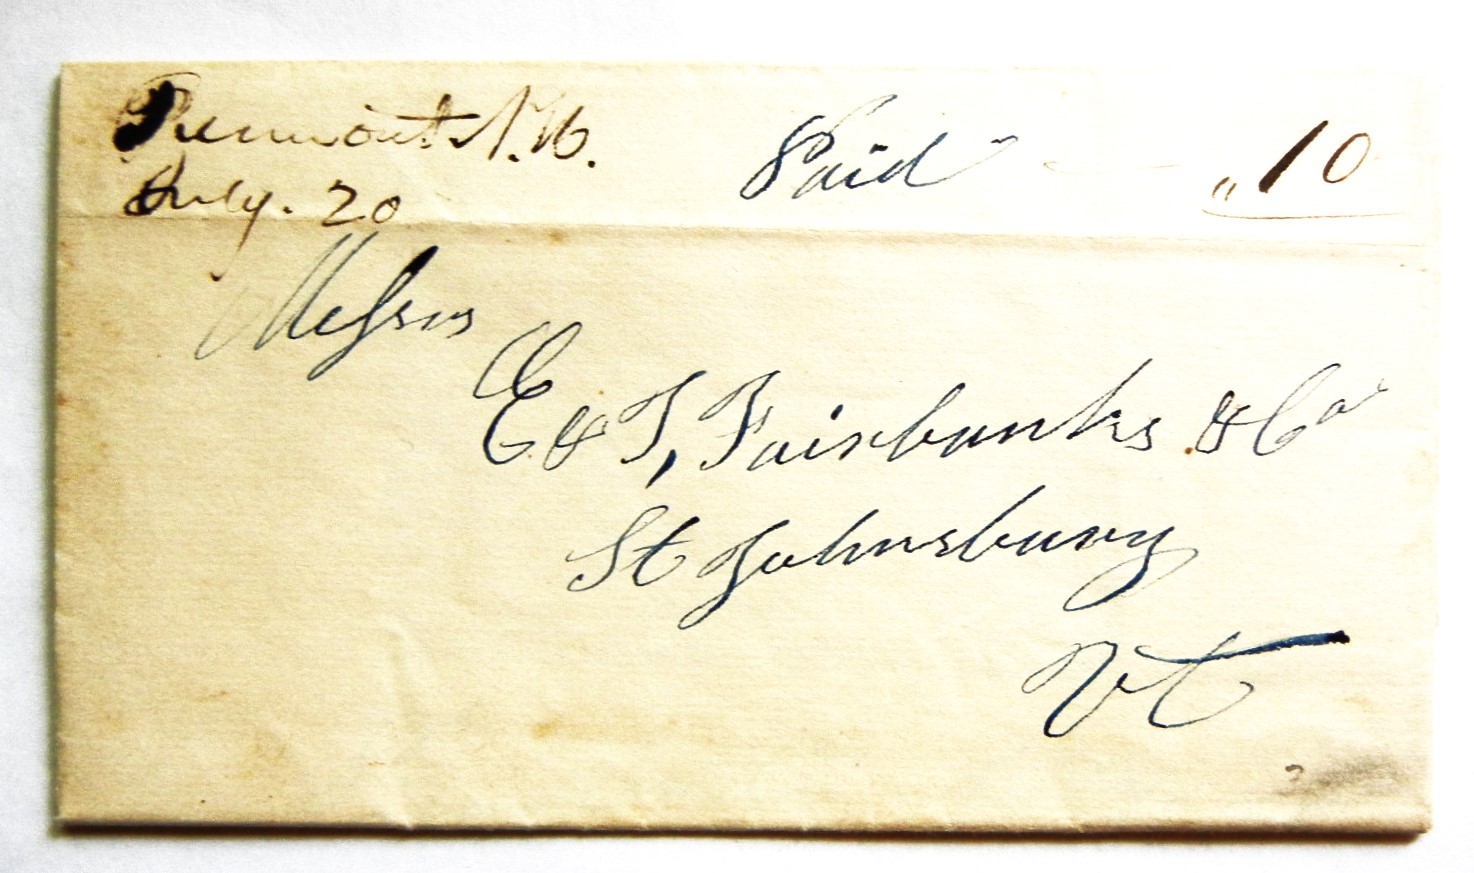 Piermont N.H. Paid „10
July. 20
Messrs
E & T, Fairbanks & Co
St Johnsbury
Vt